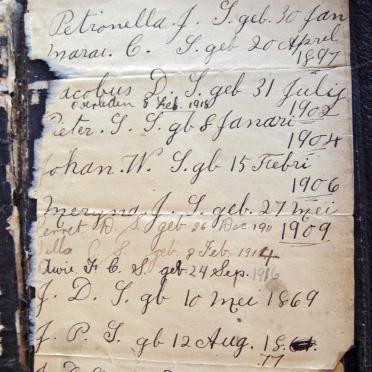 Petronella J. S. geb. 30 Jan
marai. C. S. geb 20 April
1897
Jacobus D. S. geb 31 Julij
overleden 8 Feb. 1918
1902
Pieter. S. S. gb 8 Janari
1904
Johan. W. S. gb 15 Febri
1906
S. geb. 27 mei
1909
D. S. geb 26 Dec 190
S. geb. 8 Feb. 1914
F. C. S. geb 24 Sep. 1916
J. D. S. gb 10 mei 1869
J. P. S. gb 12 Aug. 18
77